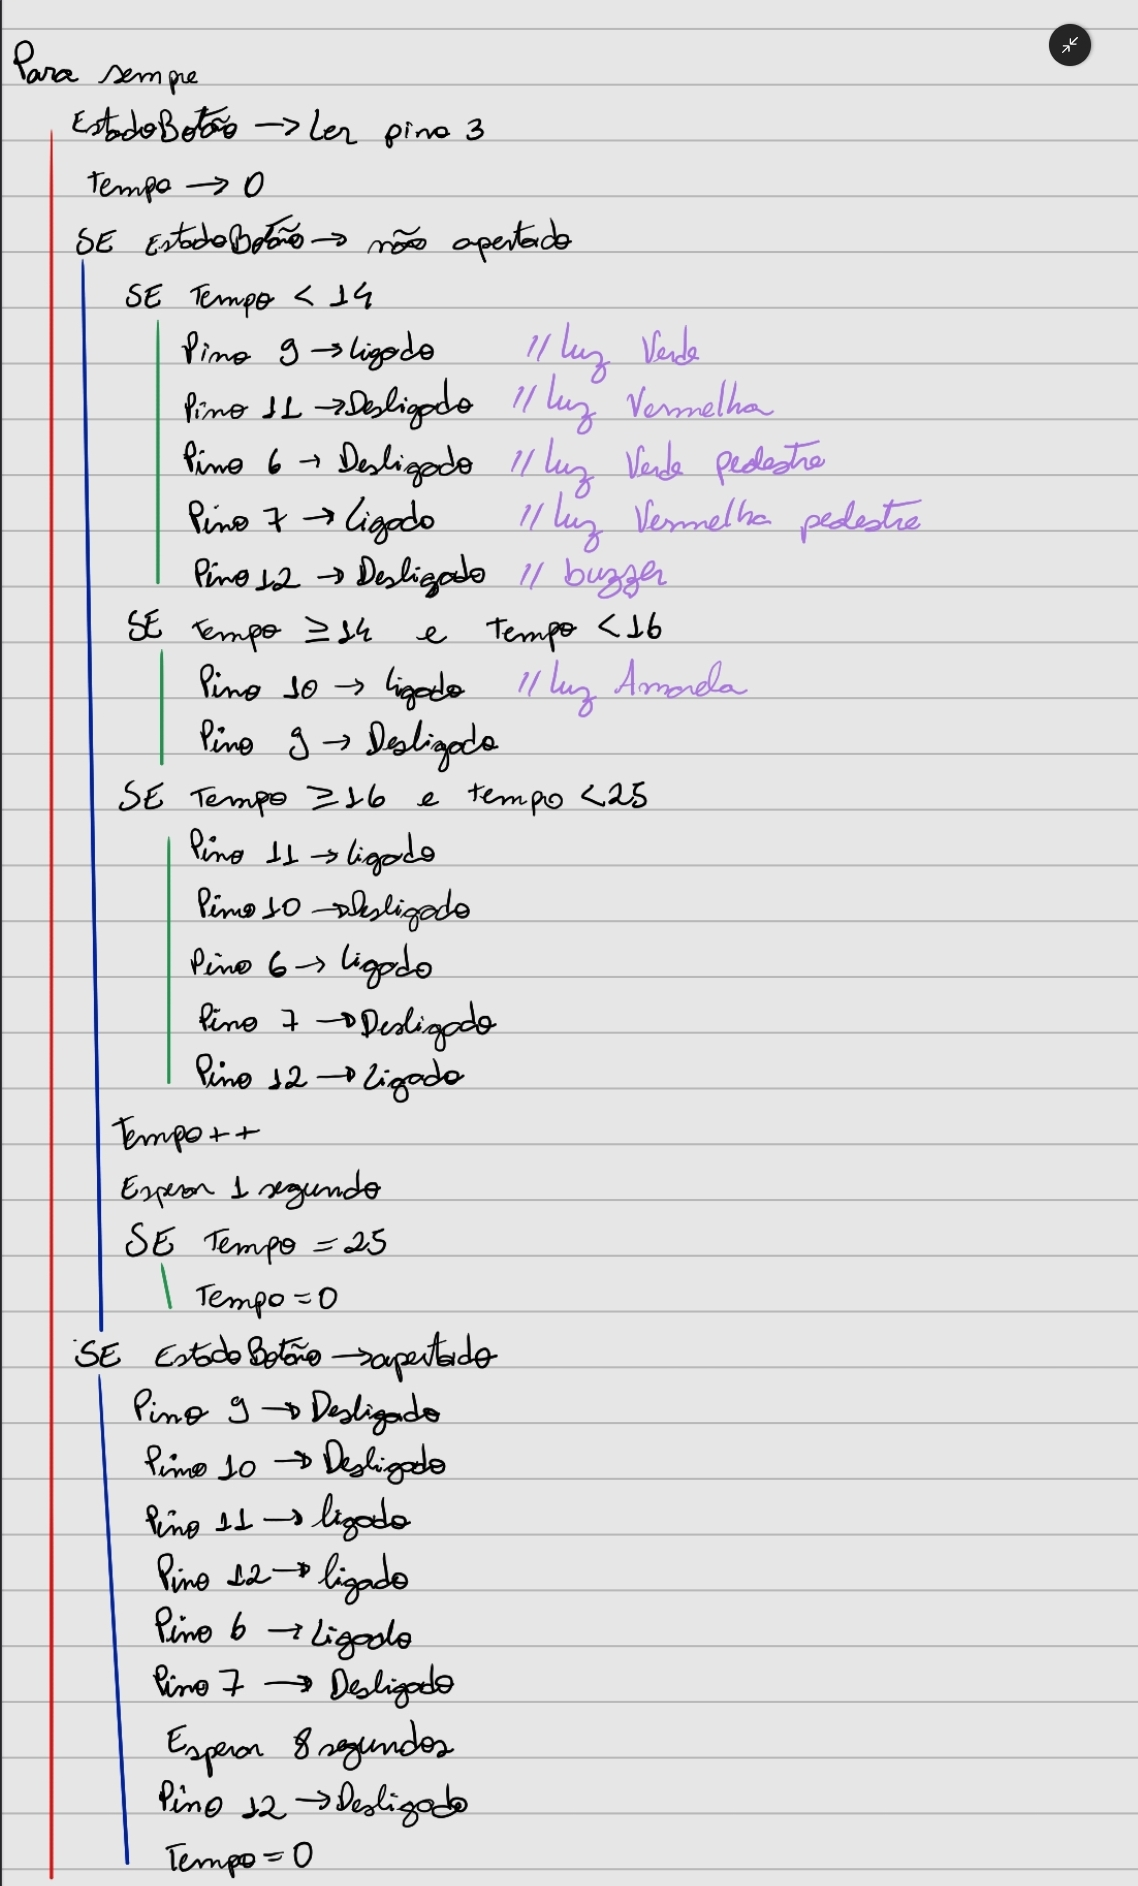 Para sempre
EstadoBotão → Ler pino 3
Tempo → 0
SE EstadoBotão → não apertado
SE Tempo < 14
Pino 9 → Ligado // luz Verde
Pino 11 → Desligado // luz Vermelha
Pino 6 → Desligado // luz Verde pedestre
Pino 7 → Ligado // luz Vermelha pedestre
Pino 12 → Desligado // buzzer
SE Tempo ≥ 14 e tempo < 16
Pino 10 → ligado // luz Amarela
Pino 9 → Desligado
SE Tempo ≥ 16 e tempo < 25
Pino 11 → ligado
Pino 10 → Desligado
Pino 6 → ligado
Pino 7 → Desligado
Pino 12 → Ligado
Tempo++
Esperar 1 segundo
SE Tempo = 25
Tempo = 0
SE EstadoBotão → apertado
Pino 9 → Desligado
Pino 10 → Desligado
Pino 11 → ligado
Pino 12 → ligado
Pino 6 → Ligado
Pino 7 → Desligado
Esperar 8 segundos
Pino 12 → Desligado
Tempo = 0